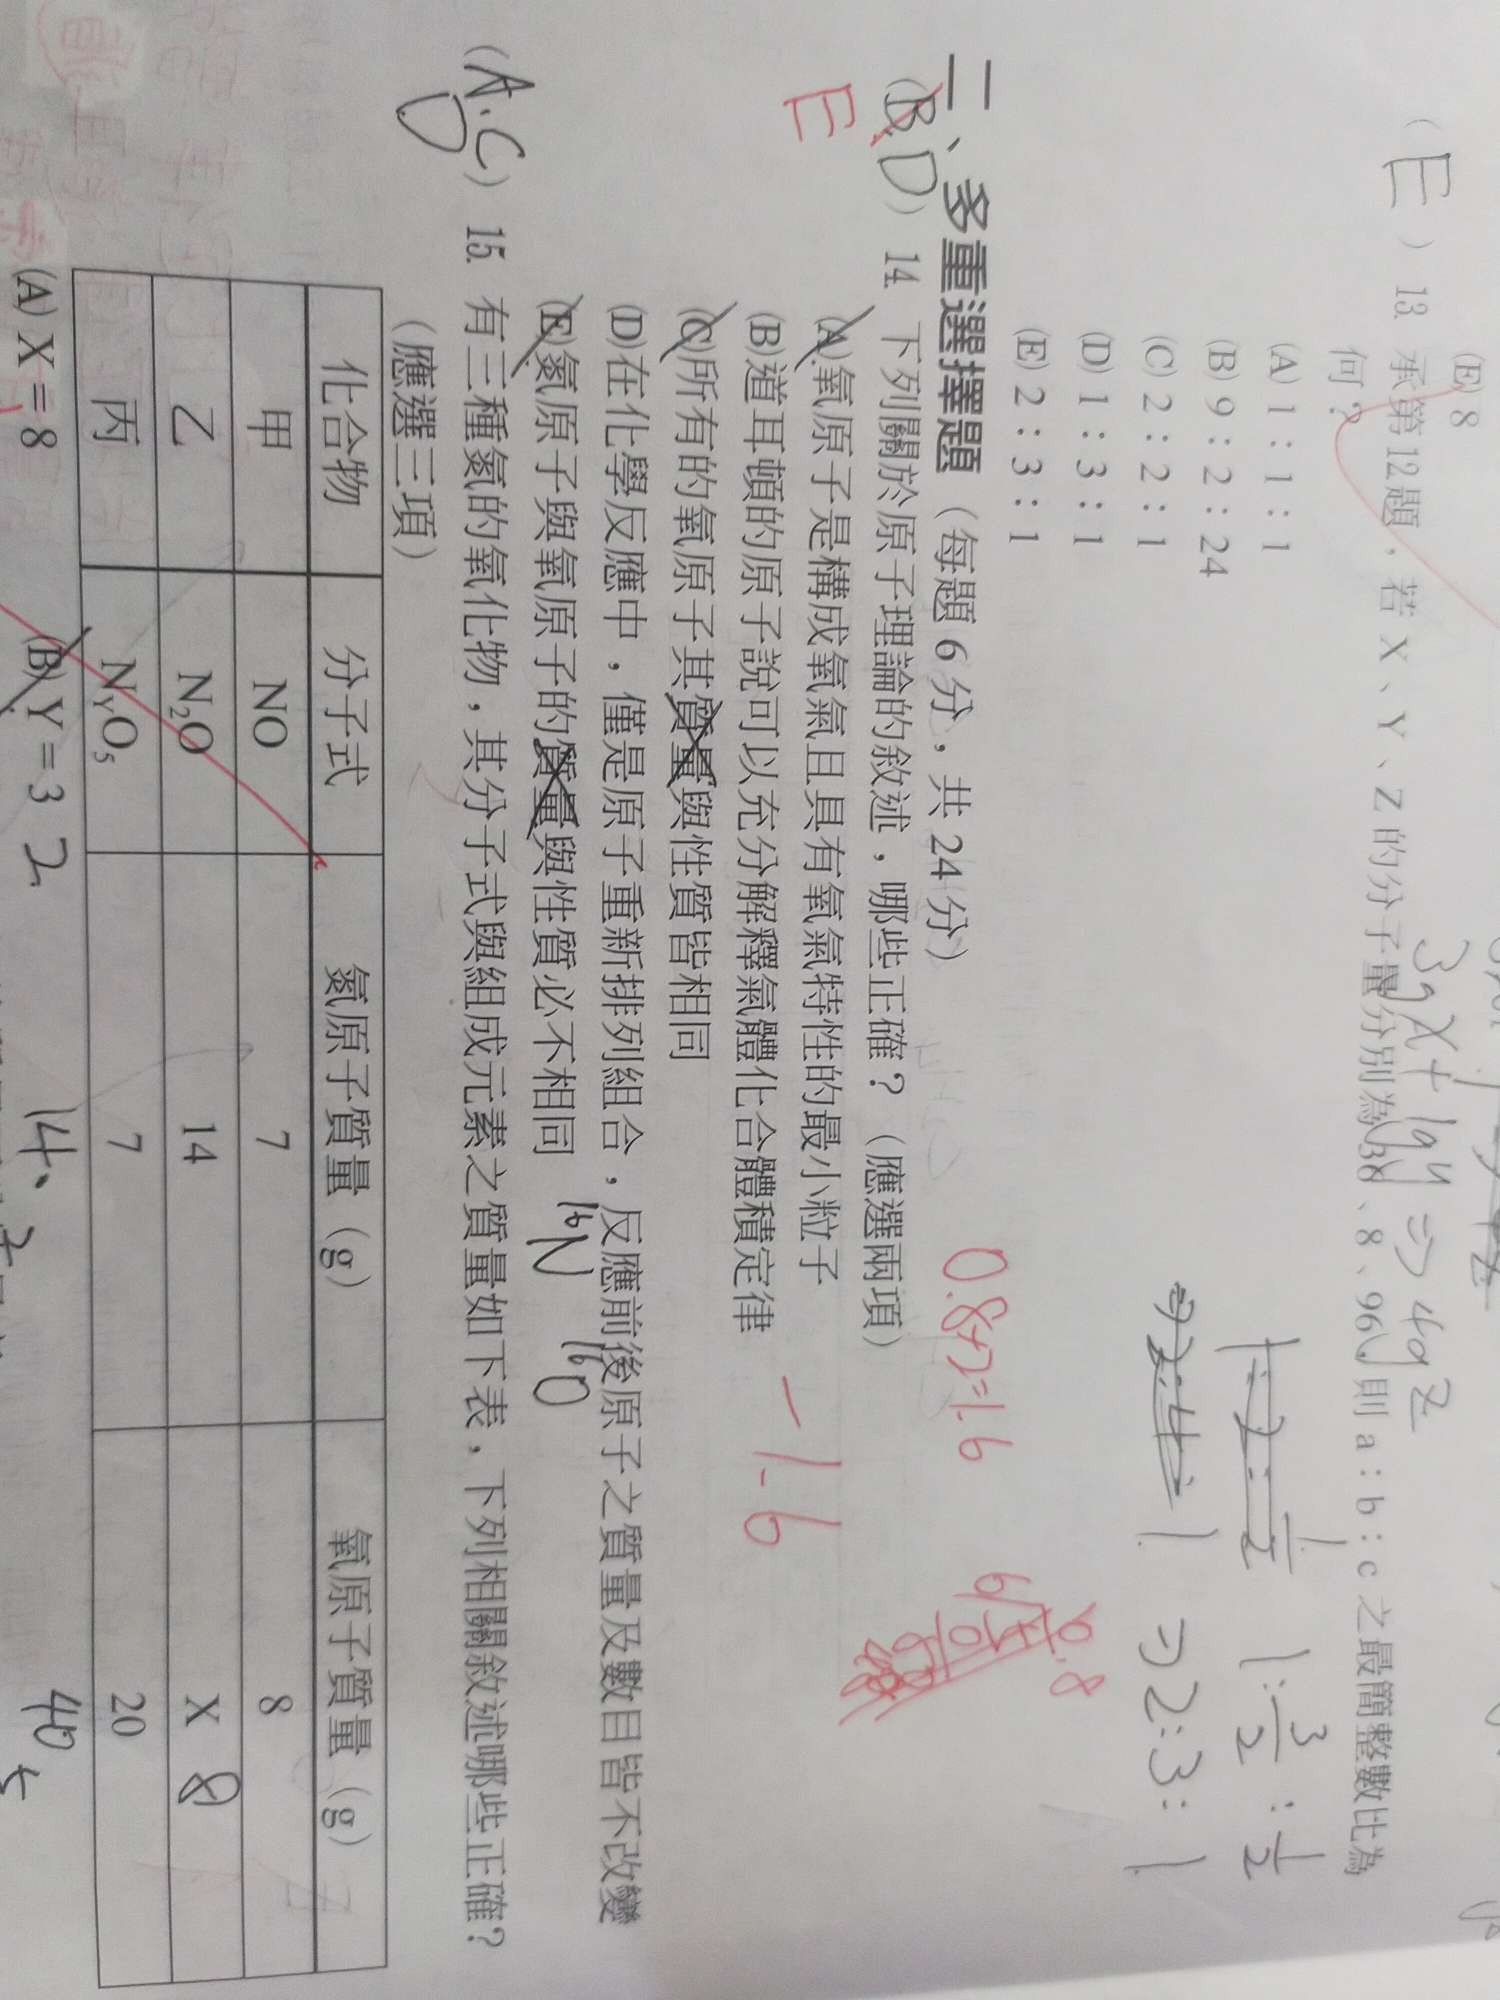 (E) 8
( E ) 13. 承第12題，若 X、Y、Z 的分子量分別為 36、8、96，則 a：b：c 之最簡整數比為
何？
(A) 1：1：1
(B) 9：2：24
(C) 2：2：1
(D) 1：3：1
(E) 2：3：1
1：3/2：1/2
⇒ 2：3：1
二、多重選擇題（每題 6 分，共 24 分）
0.8×2=1.6
(B.D) 14. 下列關於原子理論的敘述，哪些正確？（應選兩項）
E
(A)氧原子是構成氧氣且具有氧氣特性的最小粒子
(B)道耳頓的原子說可以充分解釋氣體化合體積定律
-1.6
(C)所有的氧原子其質量與性質皆相同
(D)在化學反應中，僅是原子重新排列組合，反應前後原子之質量及數目皆不改變
(E)氮原子與氧原子的質量與性質必不相同
16N 16O
(A.C D) 15. 有三種氮的氧化物，其分子式與組成元素之質量如下表，下列相關敘述哪些正確？
（應選三項）
化合物 分子式 氮原子質量（g） 氧原子質量（g）
甲 NO 7 8
乙 N₂O 14 X 8
丙 NYO₅ 7 20
(A) X = 8 (B) Y = 3 2 14 40